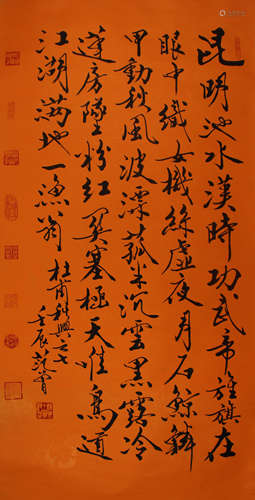 昆明池水漢時功武帝旌旗在
眼中織女機絲虛夜月石鯨鱗
甲動秋風波漂菰米沉雲黑露冷
蓮房墜粉紅關塞極天唯鳥道
江湖滿地一漁翁 杜甫秋興之七
壬辰